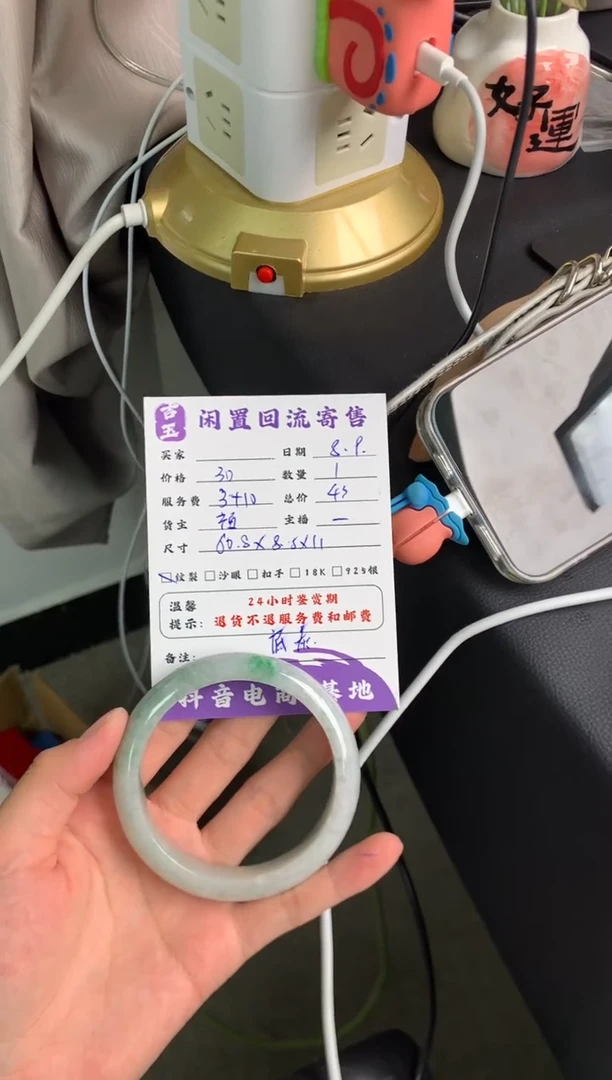 好運
吉玉 闲置回流寄售
买家 日期 8.9.
价格 30 数量 1
服务费 3+10 总价 43
货主 主播 一
尺寸 60.5×8.5×11
纹裂 沙眼 扣手 18K 925银
温馨提示: 24小时鉴赏期
退货不退服务费和邮费
备注:
抖音电商 基地